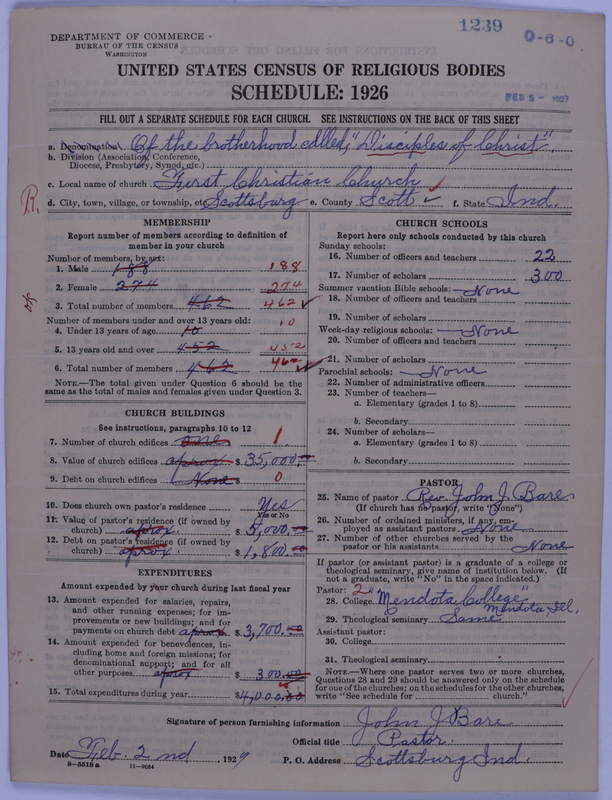 1239
0-6-0
DEPARTMENT OF COMMERCE
BUREAU OF THE CENSUS
WASHINGTON
UNITED STATES CENSUS OF RELIGIOUS BODIES
SCHEDULE: 1926
FEB 5 - 1927
FILL OUT A SEPARATE SCHEDULE FOR EACH CHURCH. SEE INSTRUCTIONS ON THE BACK OF THIS SHEET
a. Denomination Of the brotherhood called, "Disciples of Christ"
b. Division (Association, Conference,
Diocese, Presbytery, Synod, etc.)
c. Local name of church First Christian Church
d. City, town, village, or township, etc. Scottsburg e. County Scott f. State Ind.
R.
MEMBERSHIP
Report number of members according to definition of
member in your church
Number of members, by sex:
1. Male 188 188
2. Female 274 274
3. Total number of members 462 462
Number of members under and over 13 years old:
4. Under 13 years of age 10 10
5. 13 years old and over 452 452
6. Total number of members 462 462
NOTE.—The total given under Question 6 should be the
same as the total of males and females given under Question 3.
CHURCH BUILDINGS
See instructions, paragraphs 10 to 12
7. Number of church edifices one 1
8. Value of church edifices aprox $ 35,000.
9. Debt on church edifices None $ 0
10. Does church own pastor's residence Yes
Yes or No
11. Value of pastor's residence (if owned by
church) aprox $ 5,000.
12. Debt on pastor's residence (if owned by
church) aprox. $ 1,800.
EXPENDITURES
Amount expended by your church during last fiscal year
13. Amount expended for salaries, repairs,
and other running expenses; for im-
provements or new buildings; and for
payments on church debt aprox $ 3,700.
14. Amount expended for benevolences, in-
cluding home and foreign missions; for
denominational support; and for all
other purposes aprox $ 300.00
15. Total expenditures during year $ 4,000.00
CHURCH SCHOOLS
Report here only schools conducted by this church
Sunday schools:
16. Number of officers and teachers 22
17. Number of scholars 300
Summer vacation Bible schools: None
18. Number of officers and teachers
19. Number of scholars
Week-day religious schools: None
20. Number of officers and teachers
21. Number of scholars
Parochial schools: None
22. Number of administrative officers
23. Number of teachers—
a. Elementary (grades 1 to 8)
b. Secondary
24. Number of scholars—
a. Elementary (grades 1 to 8)
b. Secondary
PASTOR
25. Name of pastor Rev. John J. Bare
(If church has no pastor, write "None")
26. Number of ordained ministers, if any, em-
ployed as assistant pastors None
27. Number of other churches served by the
pastor or his assistants None
If pastor (or assistant pastor) is a graduate of a college or
theological seminary, give name of institution below. (If
not a graduate, write "No" in the space indicated.)
Pastor: 2
28. College "Mendota College"
Mendota Ill.
29. Theological seminary Same
Assistant pastor:
30. College
31. Theological seminary
NOTE.—Where one pastor serves two or more churches,
Questions 28 and 29 should be answered only on the schedule
for one of the churches; on the schedules for the other churches,
write "See schedule for church."
Signature of person furnishing information John J. Bare
Official title Pastor.
Date Feb. 2nd, 1929 P. O. Address Scottsburg Ind.
8—5518 a 11—9034